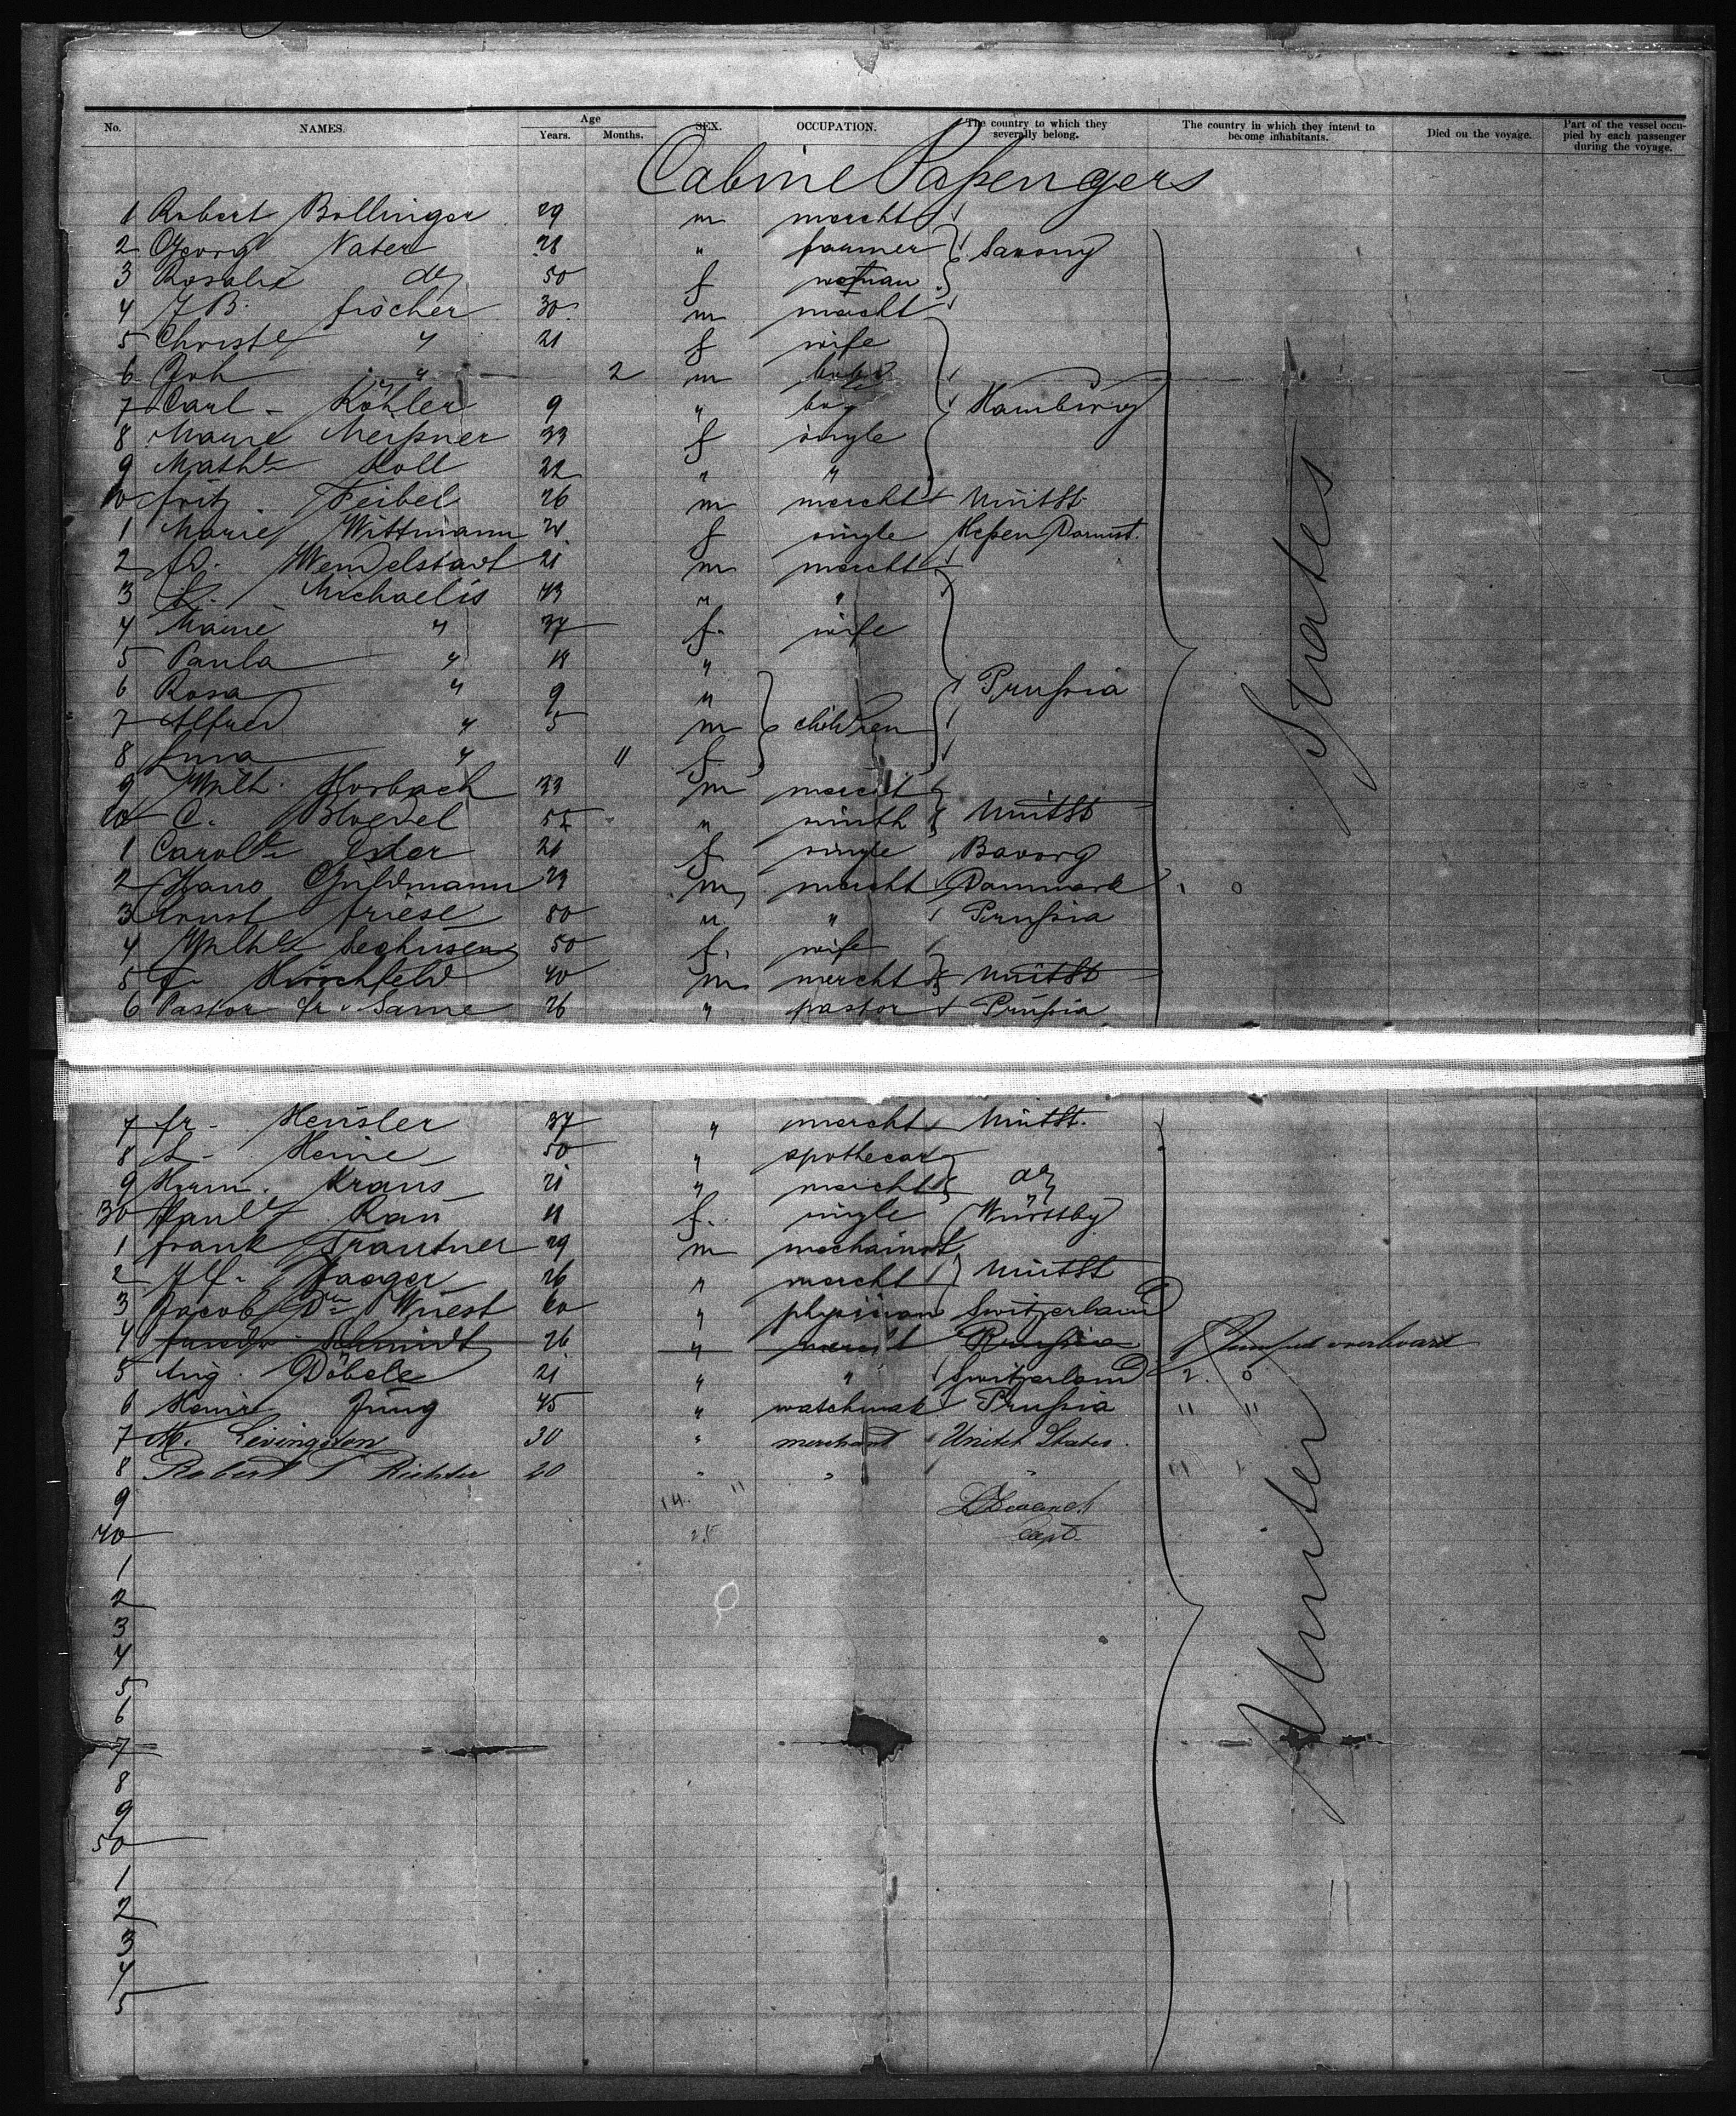 No. NAMES. Age Years. Months. SEX. OCCUPATION. The country to which they severally belong. The country in which they intend to become inhabitants. Died on the voyage. Part of the vessel occupied by each passenger during the voyage.
Cabine Paßengers
1 Robert Bollinger 29 m mercht
2 Georg Nater 28 " farmer Saxony
3 Rosalie do 50 f woman
4 J B. Fischer 30 m mercht
5 Christe " 21 f wife
6 Joh " 2 m baby
7 Carl Köhler 9 " boy Hamburg
8 Marie Meißner 33 f single
9 Mathe Koll 22 " "
10 Fritz Feibel 26 m mercht UnitSt.
1 Marie Wittmann 21 f single Heßen Darmst.
2 Wendelstadt 21 m mercht
3 L. Michaelis 43 " "
4 Marie " 37 f. wife
5 Paula " 18 "
6 Rosa " 9 " Prußia
7 Alfred " 5 m children
8 " 11 f
9 Wilh. Horbach 33 m mercht
20 C. Bloedel 55 " smith UnitSt
1 Carole Eder 21 f single Bavarg
2 Hans Guldmann 23 m mercht Danmark 1 0
3 Ernst Friese 50 " " Prußia
4 Wilhe Seghusen 50 f. wife
5 F. Hirschfeld 40 m mercht UnitSt
6 Pastor Fr. Sarne 26 " pastor Prußia
7 Fr. Hensler 37 " mercht UnitSt.
8 L. Heine 50 " apothecar
9 Herm. Kraus 21 " mercht do
30 Paule Rau 18 f. single Würstbg
1 Frank Trautner 29 m mechainst
2 Alf. Jaeger 26 " mercht UnitSt
3 Jacob Dr Wuest 60 " physician Switzerland
4 Schmidt 26 " mercht Rußia 1 Jumped overboard
5 Aug. Döbele 21 " " Switzerland 2. 0
6 Heinr Jung 45 " watchmak Prußia " "
7 M. Livingston 30 " merchant United States.
8 Robert T Richter 20 " " "
9 14. "
40 25 Capt.
1
2
3
4
5
6
7
8
9
50
1
2
3
4
5
United States